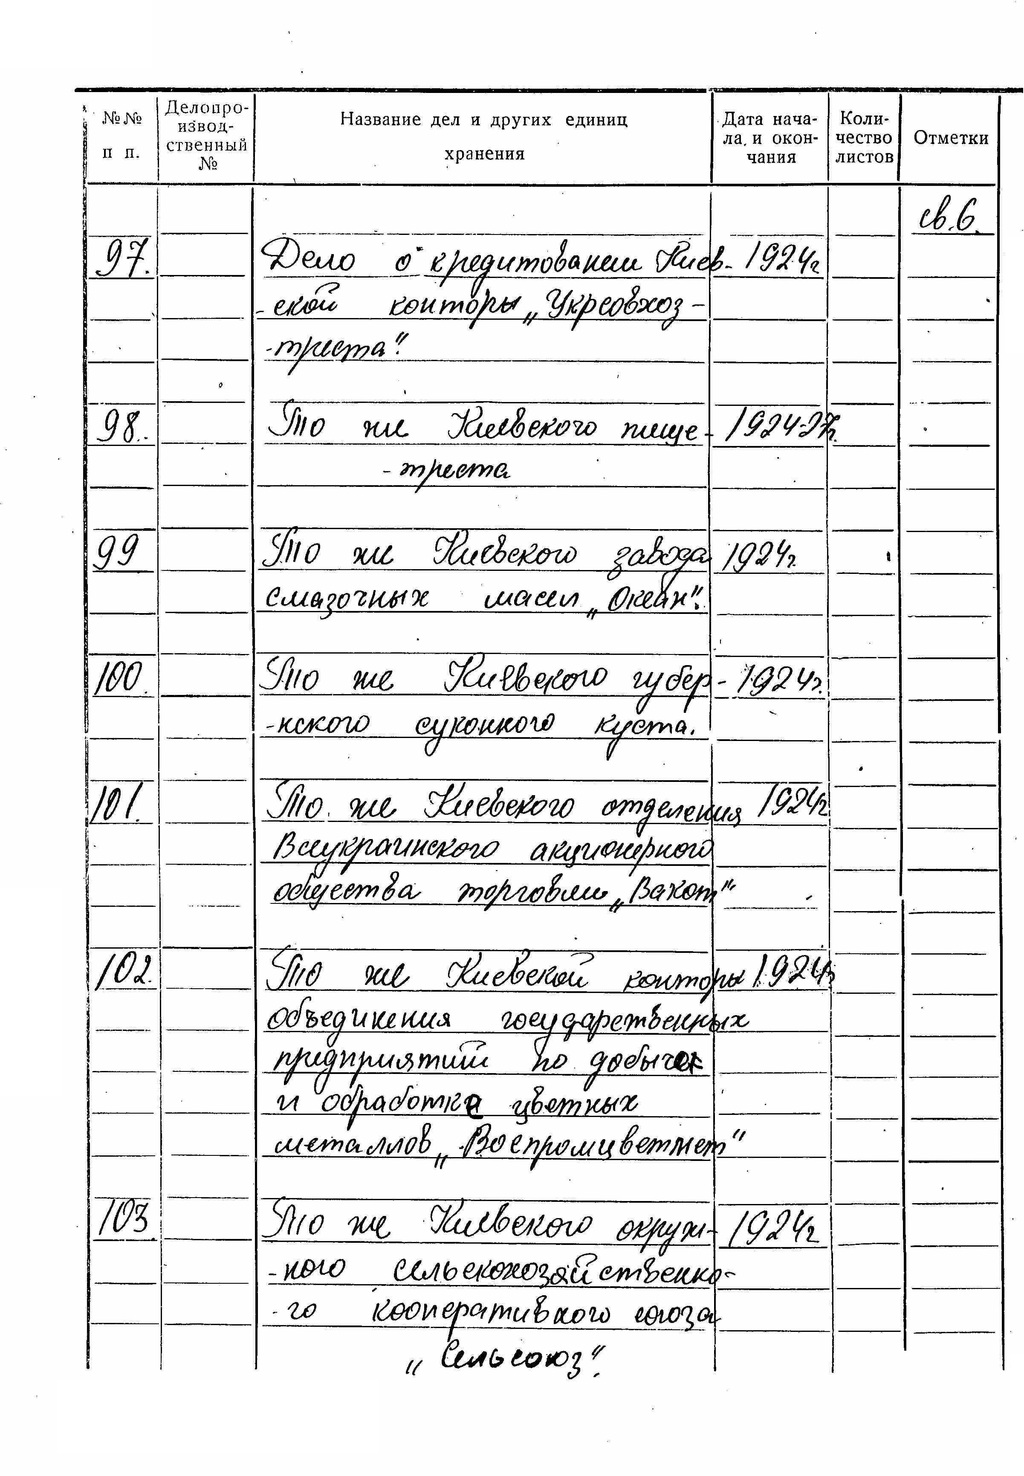 №№ п п. Делопроизводственный № Название дел и других единиц хранения Дата начала и окончания Количество листов Отметки
св.6.
97. Дело о кредитовании Киев- 1924г
-ской конторы „Укрсовхоз-
-треста".
98. То же Киевского пище- 1924-27г.
-треста
99 То же Киевского завода 1924г.
смазочных масел „Океан".
100. То же Киевского губер- 1924г.
-нского суконного куста.
101. То же Киевского отделения 1924г
Всеукраинского акционерного
общества торговли „Вакот"
102. То же Киевской конторы 1924г
объединения государственных
предприятий по добыче
и обработке цветных
металлов „Воспромцветмет"
103 То же Киевского окруж- 1924г
-ного сельскохозяйственно-
-го кооперативного союза
„Сельсоюз".